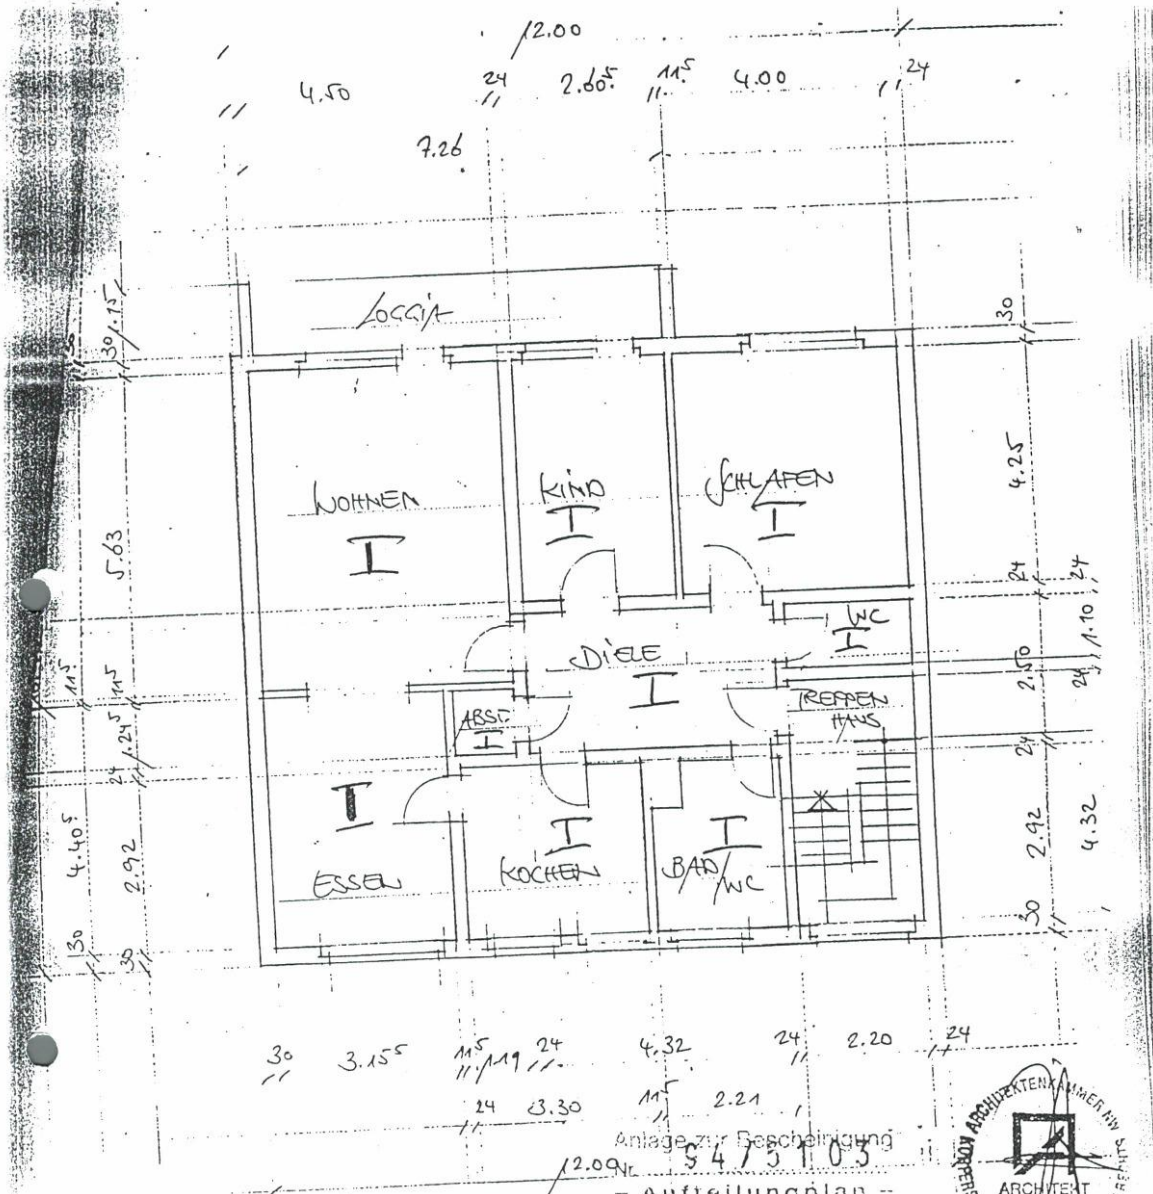 12.00
4.50 24 2.60⁵ 11⁵ 4.00 24
7.26
LOGGIA
30 1.15
30
WOHNEN
I
KIND
I
SCHLAFEN
I
5.63
4.25
24 24
WC
I
1.10
DIELE
I
2.50
24
11⁵ 11⁵
ABST.
I
TREPPEN
HAUS
1.24⁵
24
24
I
ESSEN
I
KOCHEN
I
BAD/WC
4.40⁵
2.92
2.92
4.32
30
30
30
30 3.15⁵ 11⁵ 1.19 24 4.32 24 2.20 24
24 3.30 11⁵ 2.21
Anlage zur Bescheinigung
12.00 Nr.
- Aufteilungplan -
ARCHITEKTENKAMMER NW
ARCHITEKT